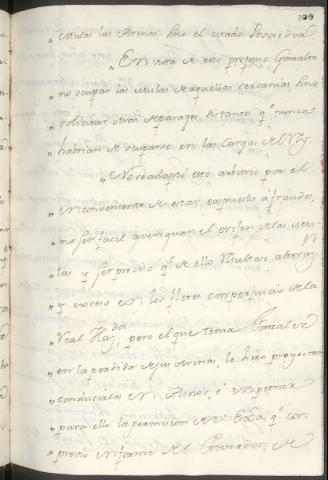 209
" utulas las Arinas, hno el citado Proveedor.
" En vista de esto propuso Gonzalez
" no ocupar las utulas de aquellas cercanias, sino
" solicitar otras de parages distantes qe. nunca
" habrian de ocuparse en las Cargas del Rey.
" No se adapto este arbitrio por el
" inconveniente de estar expuesto á fraudes,
" no ser facil averiguar el origen de las utu-
" las y ser preciso qe. de ello resultase alteraz.n
" y exceso en los fletes con perjuicio de la
" Real Hazda; pero el que tenia Gonzalez
" en la perdida de sus Arinas, le hizo proyectar
" conducirlas en Asnos, é impetrar
" para ello la permision de V. Exa. qe. con
" previo informe del Proveedor, se